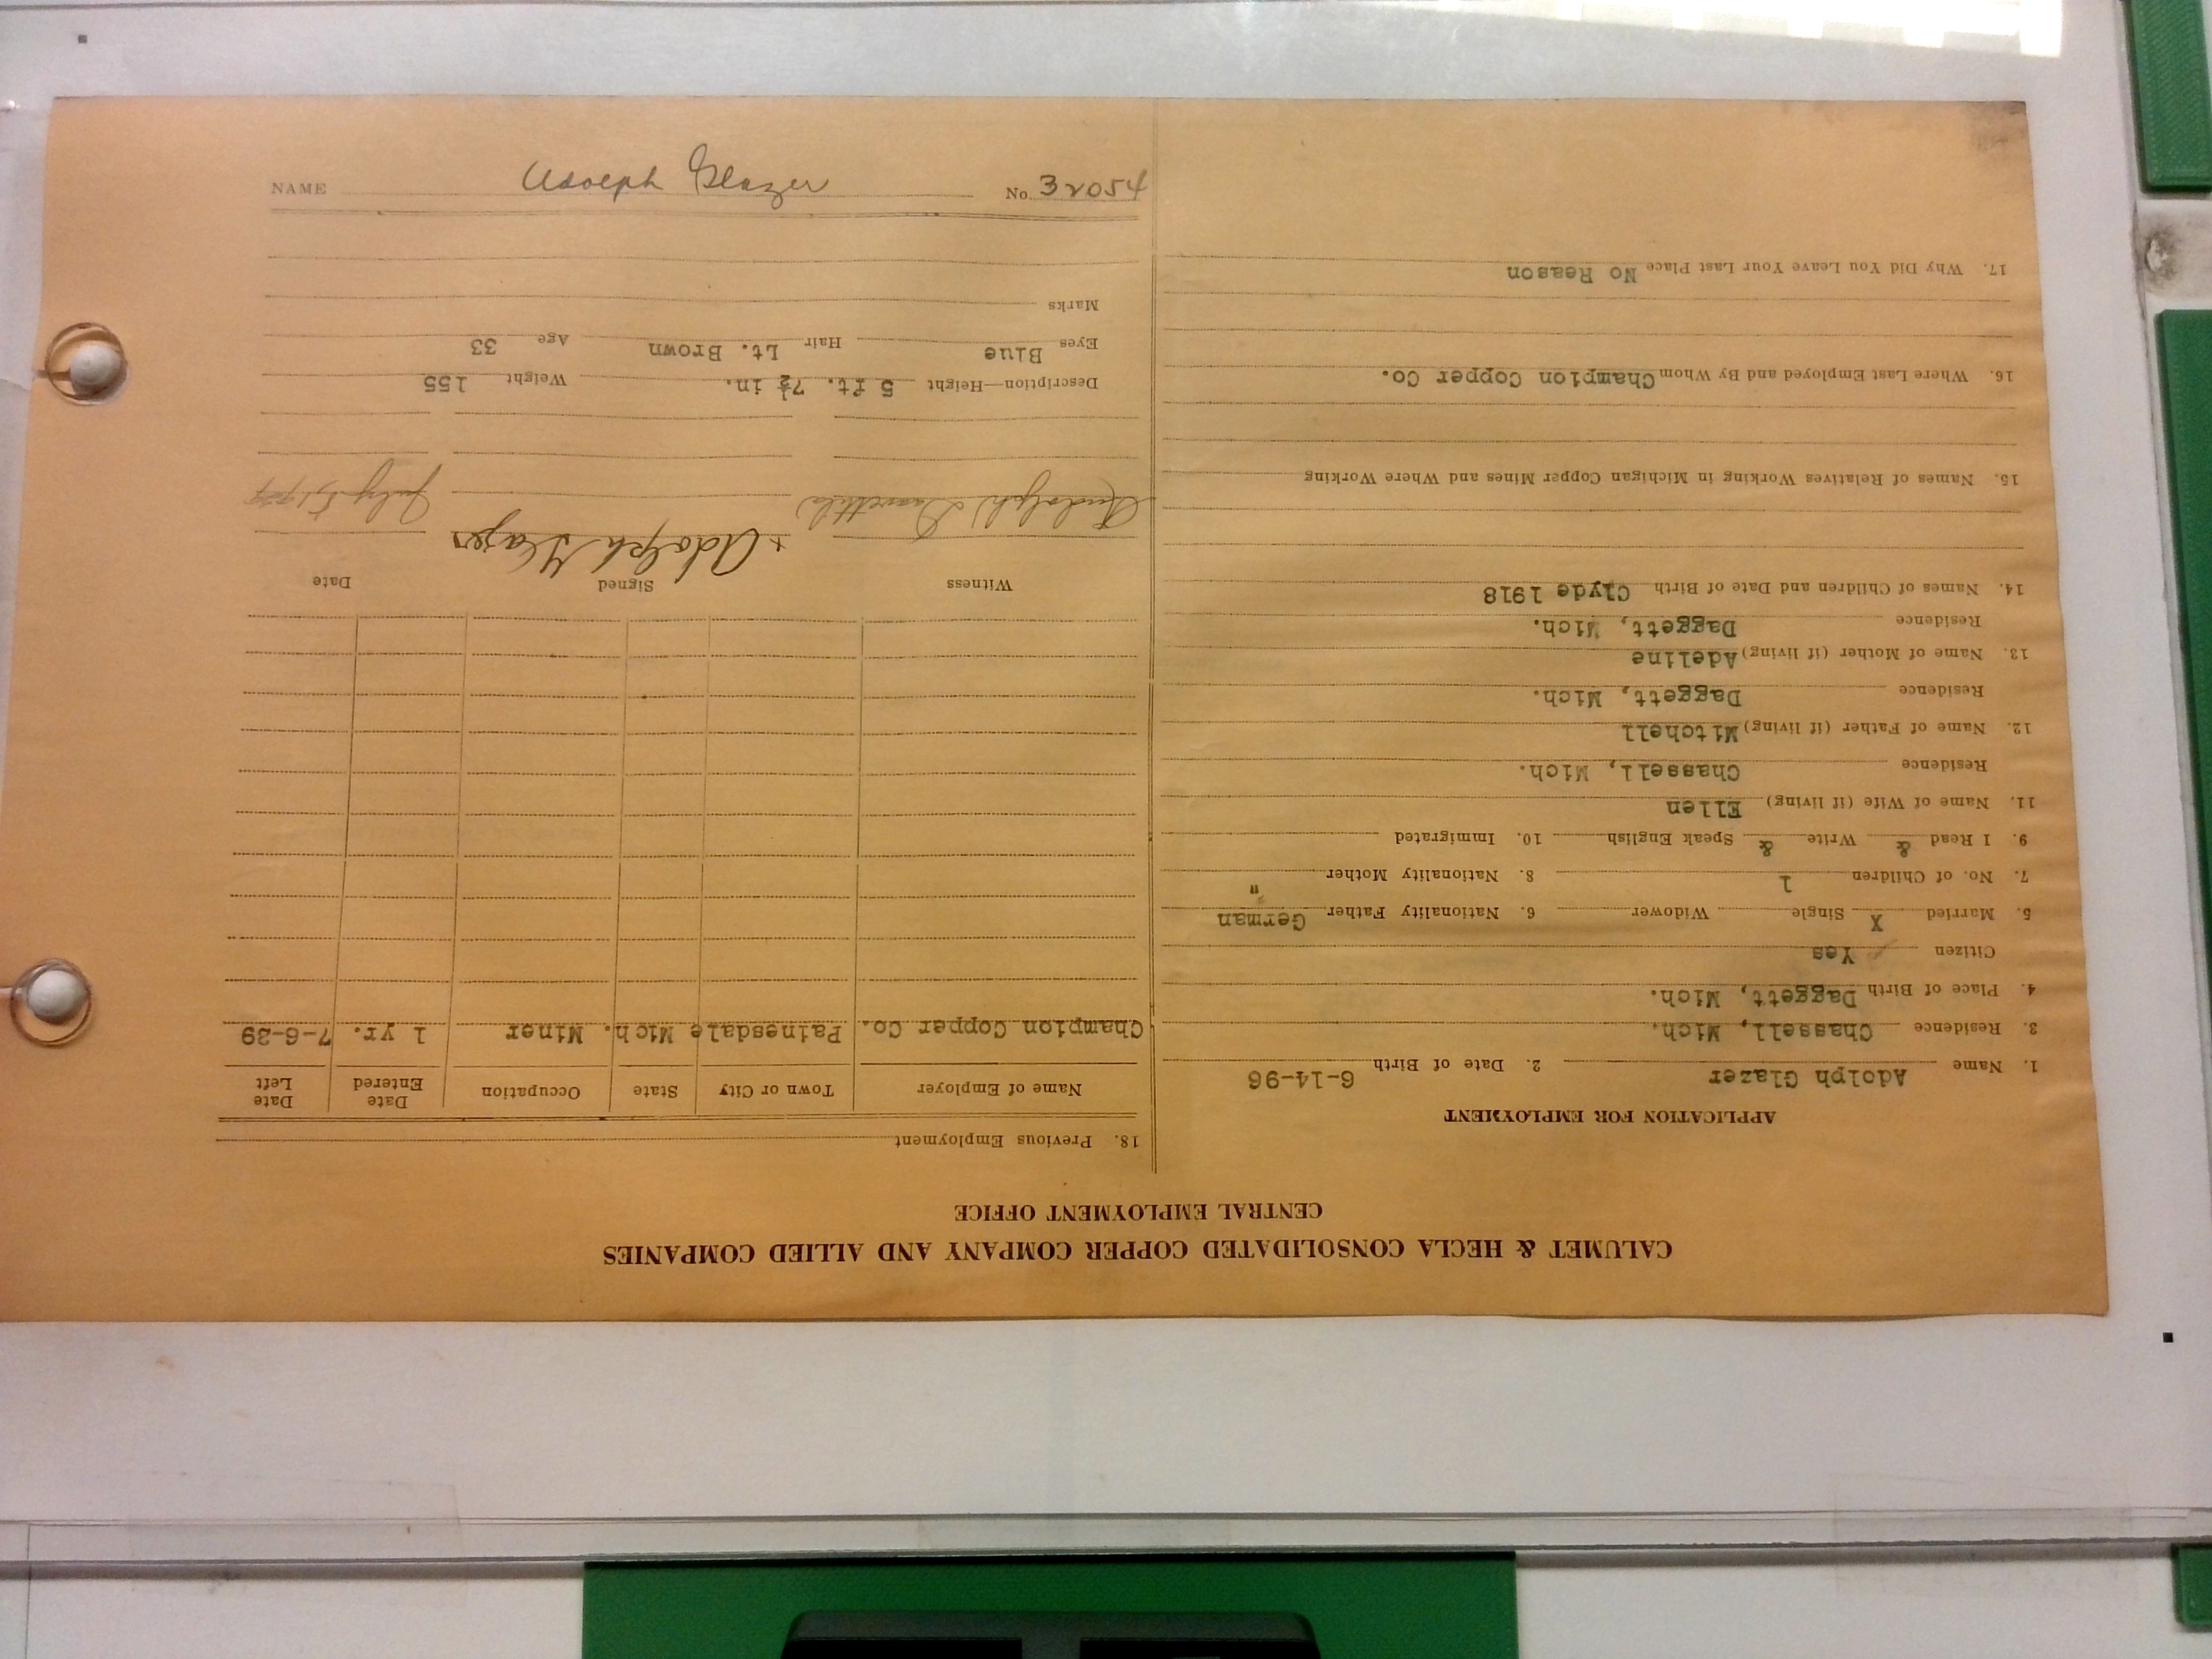 NAME Adolph Glazer No. 32054
CALUMET & HECLA CONSOLIDATED COPPER COMPANY AND ALLIED COMPANIES
CENTRAL EMPLOYMENT OFFICE
APPLICATION FOR EMPLOYMENT
1. Name Adolph Glazer 2. Date of Birth 6-14-96
3. Residence Chassell, Mich.
4. Place of Birth Daggett, Mich.
Citizen Yes
5. Married X Single Widower 6. Nationality Father German
7. No. of Children 1 8. Nationality Mother "
9. I Read & Write & Speak English 10. Immigrated
11. Name of Wife (if living) Ellen
Residence Chassell, Mich.
12. Name of Father (if living) Mitchell
Residence Daggett, Mich.
13. Name of Mother (if living) Adeline
Residence Daggett, Mich.
14. Names of Children and Date of Birth Clyde 1918
15. Names of Relatives Working in Michigan Copper Mines and Where Working
16. Where Last Employed and By Whom Champion Copper Co.
17. Why Did You Leave Your Last Place No Reason
18. Previous Employment
Name of Employer Town or City State Occupation Date Entered Date Left
Champion Copper Co. Painesdale Mich. Miner 1 yr. 7-6-29
Witness Signed Date
Rudolph x Adolph Glazer July
Description—Height 5 ft. 7½ in. Weight 155
Eyes Blue Hair Lt. Brown Age 33
Marks